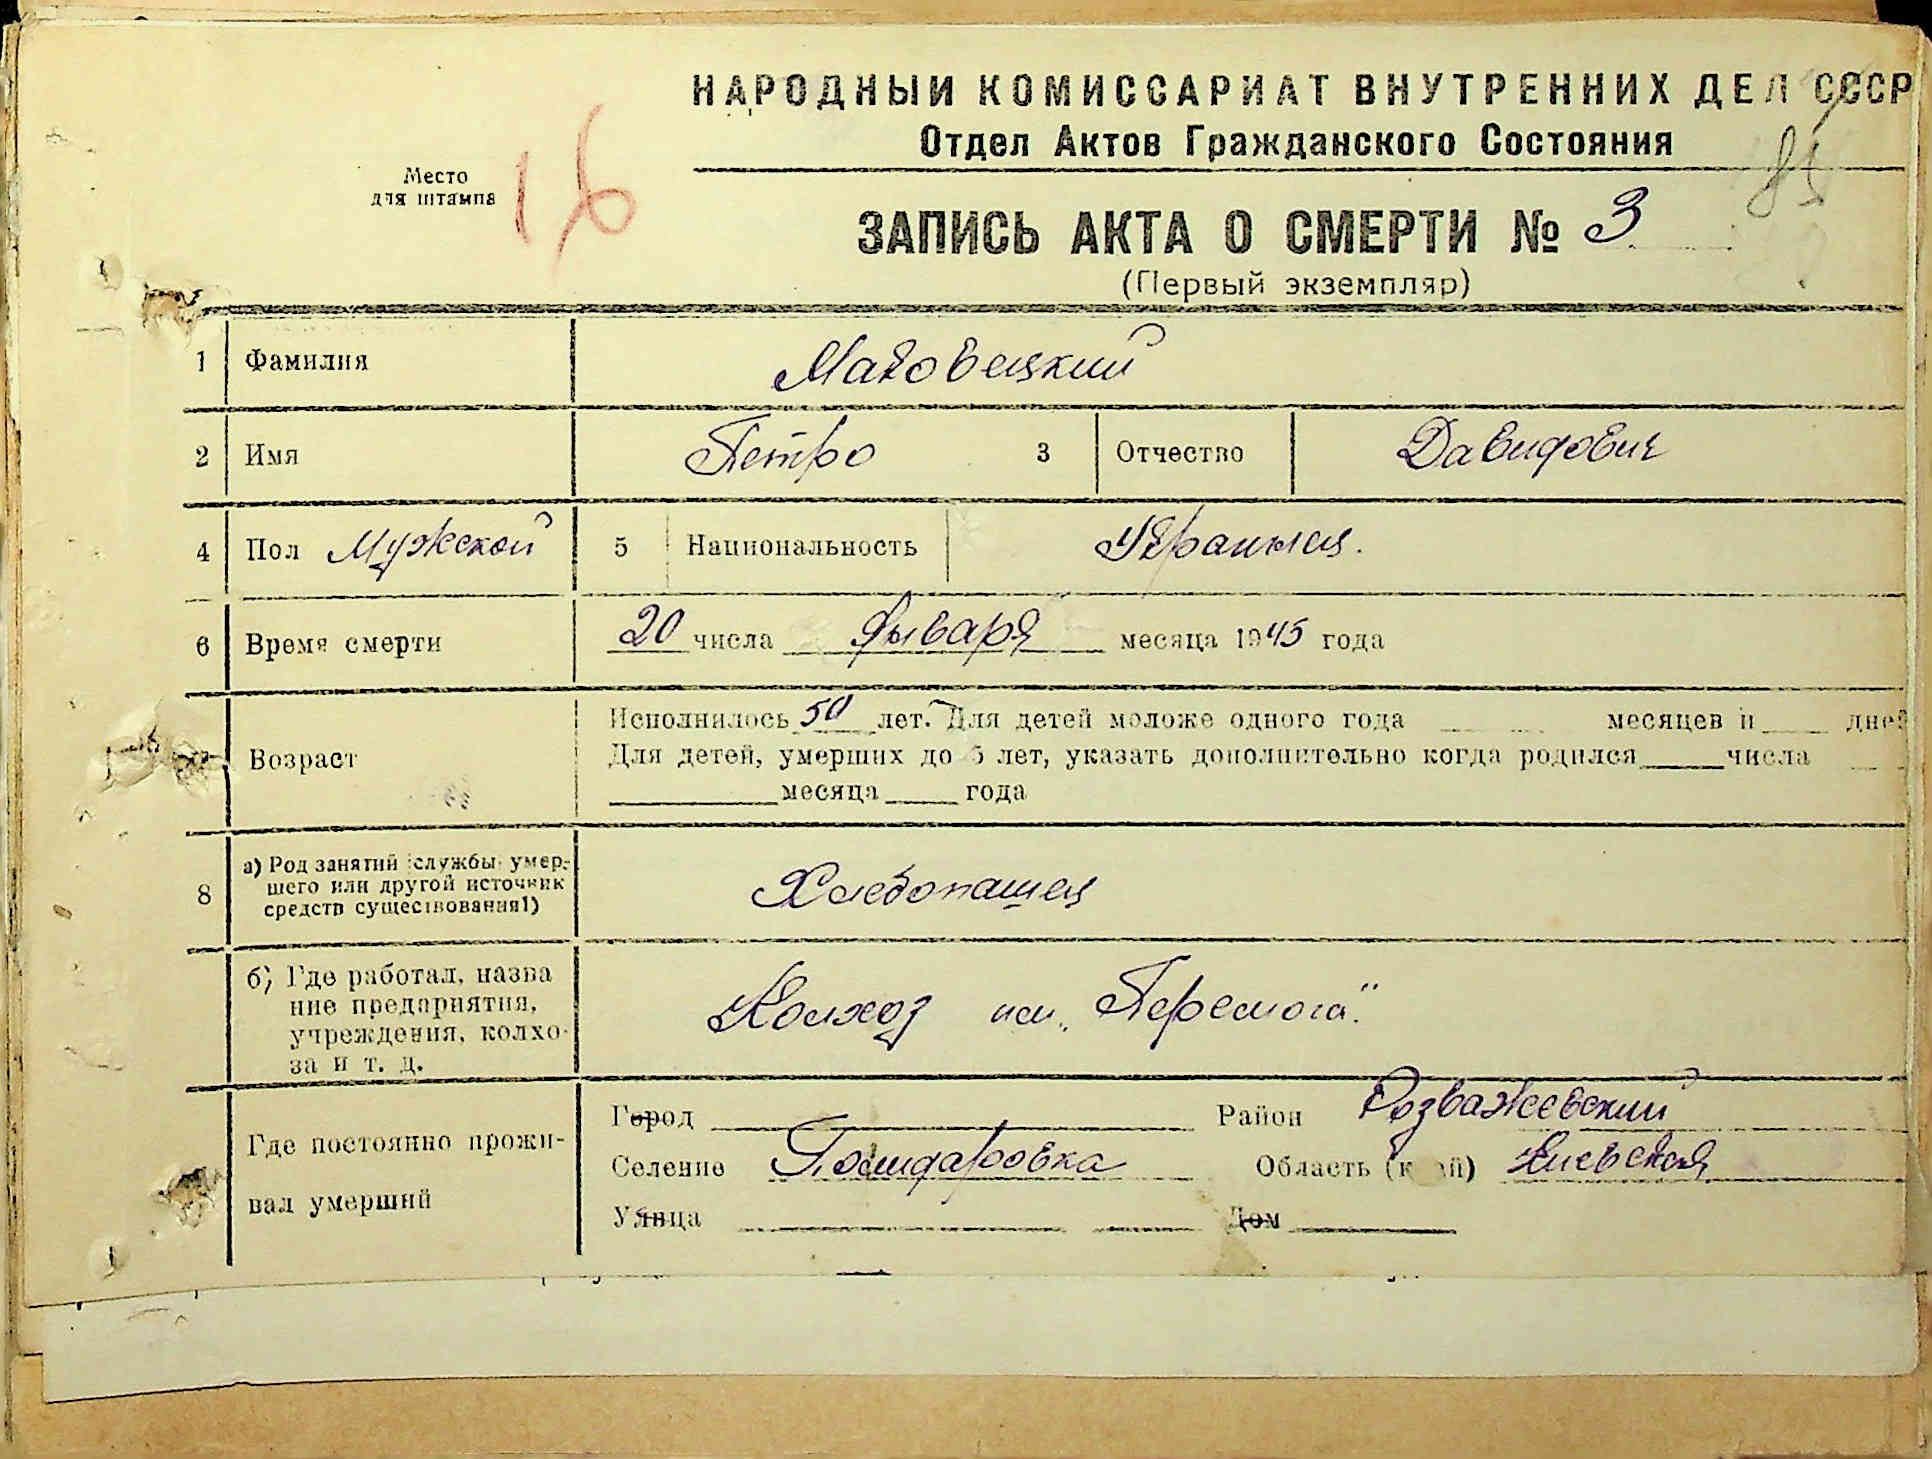 НАРОДНЫЙ КОМИССАРИАТ ВНУТРЕННИХ ДЕЛ СССР
Отдел Актов Гражданского Состояния
85
Место
для штампа
16
ЗАПИСЬ АКТА О СМЕРТИ № 3
(Первый экземпляр)
1 Фамилия
2 Имя Петро 3 Отчество Давидович
4 Пол Мужской 5 Национальность Украинец.
6 Время смерти 20 числа Января месяца 1945 года
Возраст
Исполнилось 50 лет. Для детей моложе одного года месяцев и дней
Для детей, умерших до 5 лет, указать дополнительно когда родился числа
месяца года
8 а) Род занятий службы умер-
шего или другой источник
средств существования1)
Хлебопашец
б) Где работал, назва
ние предприятия,
учреждения, колхо-
за и т. д.
Колхоз им. „Перемога".
Где постоянно прожи-
вал умерший
Город Район Розважевский
Селение Область (край) Киевская
Улица Дом